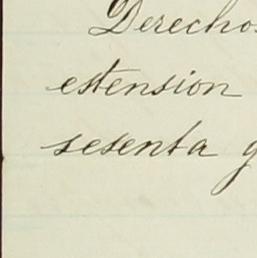 Derechos
estension
sesenta